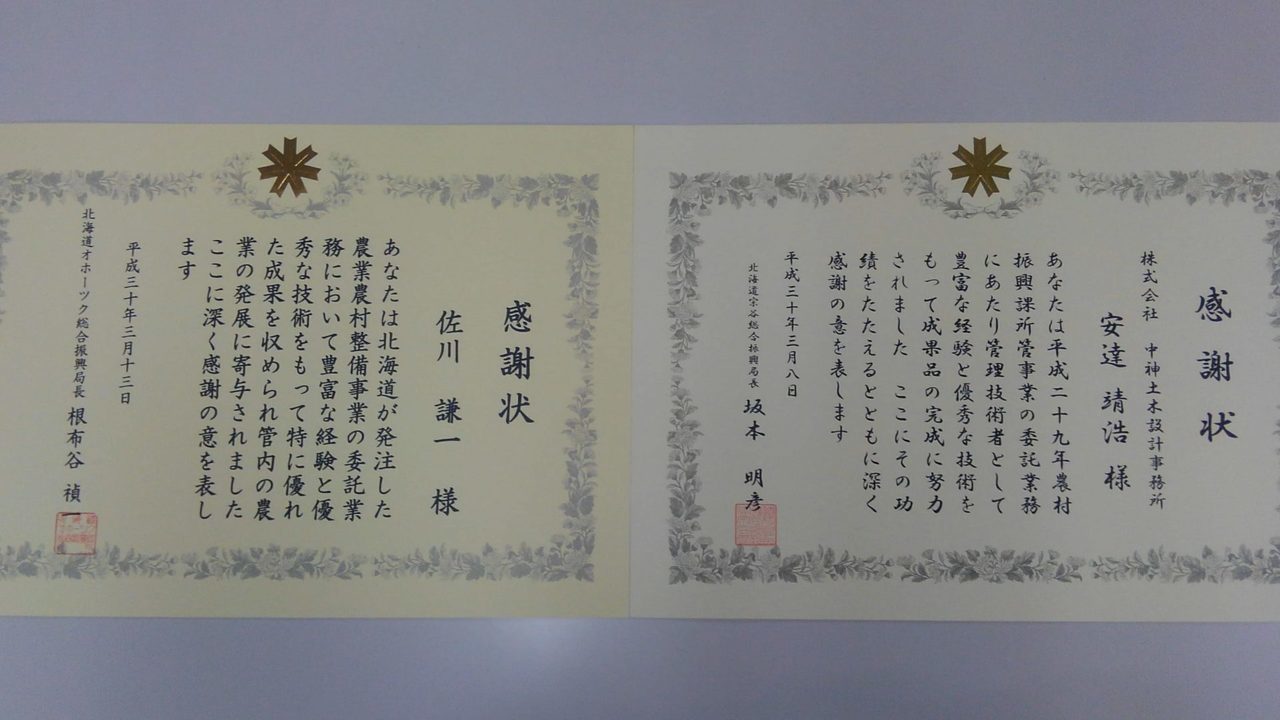 感謝状
株式会社 中神土木設計事務所
安達 靖浩 様
あなたは平成二十九年農村
振興課所管事業の委託業務
にあたり管理技術者として
豊富な経験と優秀な技術を
もって成果品の完成に努力
されました ここにその功
績をたたえるとともに深く
感謝の意を表します
平成三十年三月八日
北海道宗谷総合振興局長 坂本 明彦
感謝状
佐川 謙一 様
あなたは北海道が発注した
農業農村整備事業の委託業
務において豊富な経験と優
秀な技術をもって特に優れ
た成果を収められ管内の農
業の発展に寄与されました
ここに深く感謝の意を表し
ます
平成三十年三月十三日
北海道オホーツク総合振興局長 根布谷 禎一